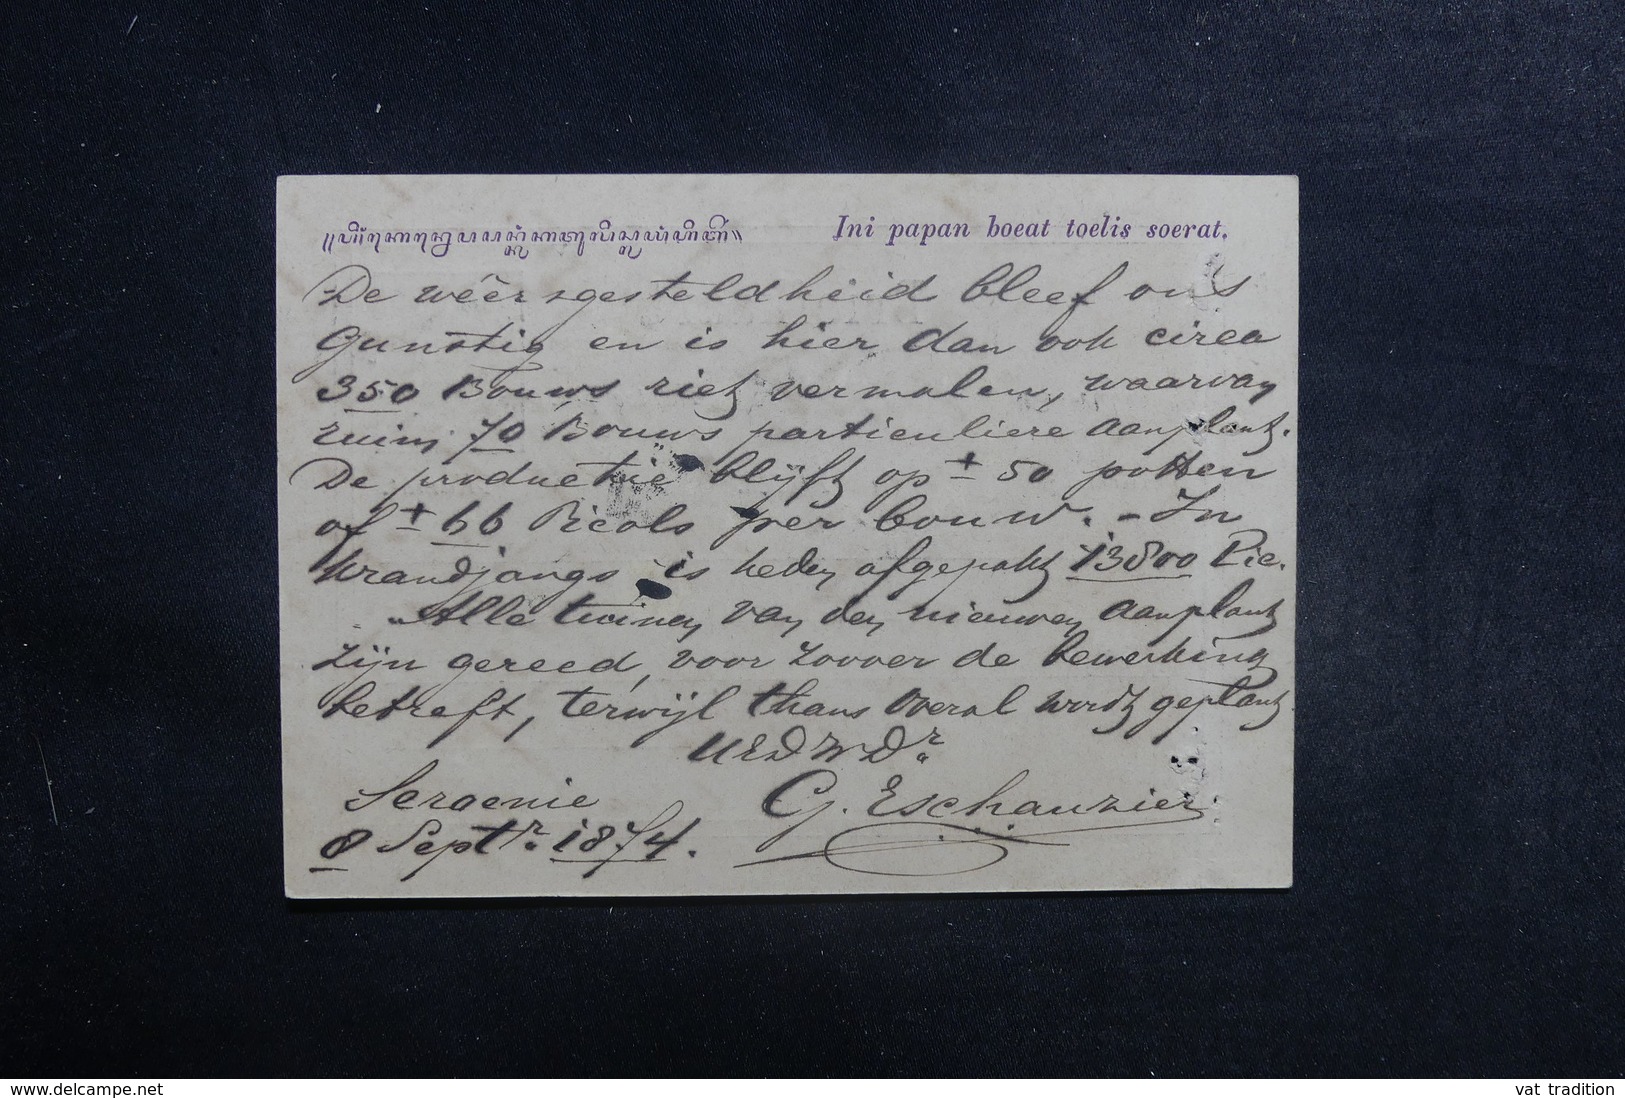 Ini papan boeat toelis soerat.
De wêersgesteldheid bleef ons
gunstig en is hier dan ook circa
350 Bouws riet vermalen, waarvan
ruim 70 Bouws particuliere aanplant.
De productie blijft op ± 50 potten
of ± 66 Picols per bouw. - In
krandjangs is heden afgepakt 13800 Pic.
Alle tuinen van den nieuwen aanplant
zijn gereed, voor zoover de bewerking
betreft, terwijl thans overal wordt geplant
UEDWDr
Seroenie G. Eschauzier
8 Septr. 1874.
www.delcampe.net vat tradition